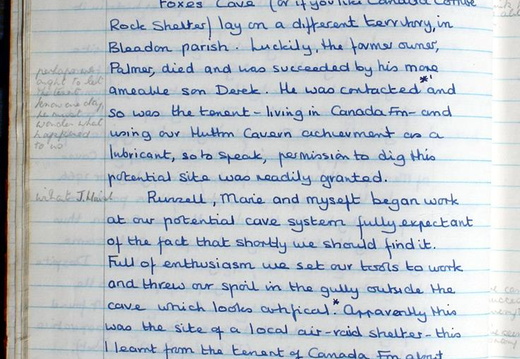 Foxes Cave (or if you like Canada Combe
Rock Shelter) lay on a different territory, in
Bleadon parish. Luckily, the former owner,
Palmer, died and was succeeded by his more
ameable son Derek. He was contacted *' and
so was the tenant - living in Canada Fm - and
using our Hutton Cavern achievment as a
lubricant, so to speak, permission to dig this
potential site was readily granted.
Russell, Marie and myself began work
at our potential cave system fully expectant
of the fact that shortly we should find it.
Full of enthusiasm we set our tools to work
and threw our spoil in the gully outside the
cave which looks artifical.* Apparently this
was the site of a local air-raid shelter - this
I learnt from the tenant of Canada Fm about
ought to let
know one day,
he must
wonder what
happened
to us
what J. Hair